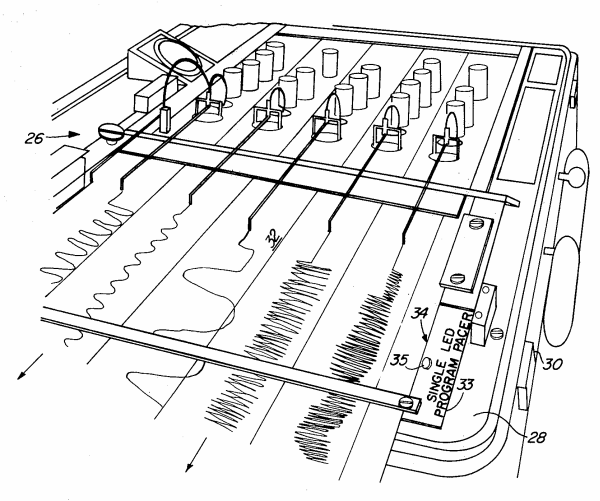 26
32
34
35
SINGLE LED
PROGRAM PACER
33
30
28